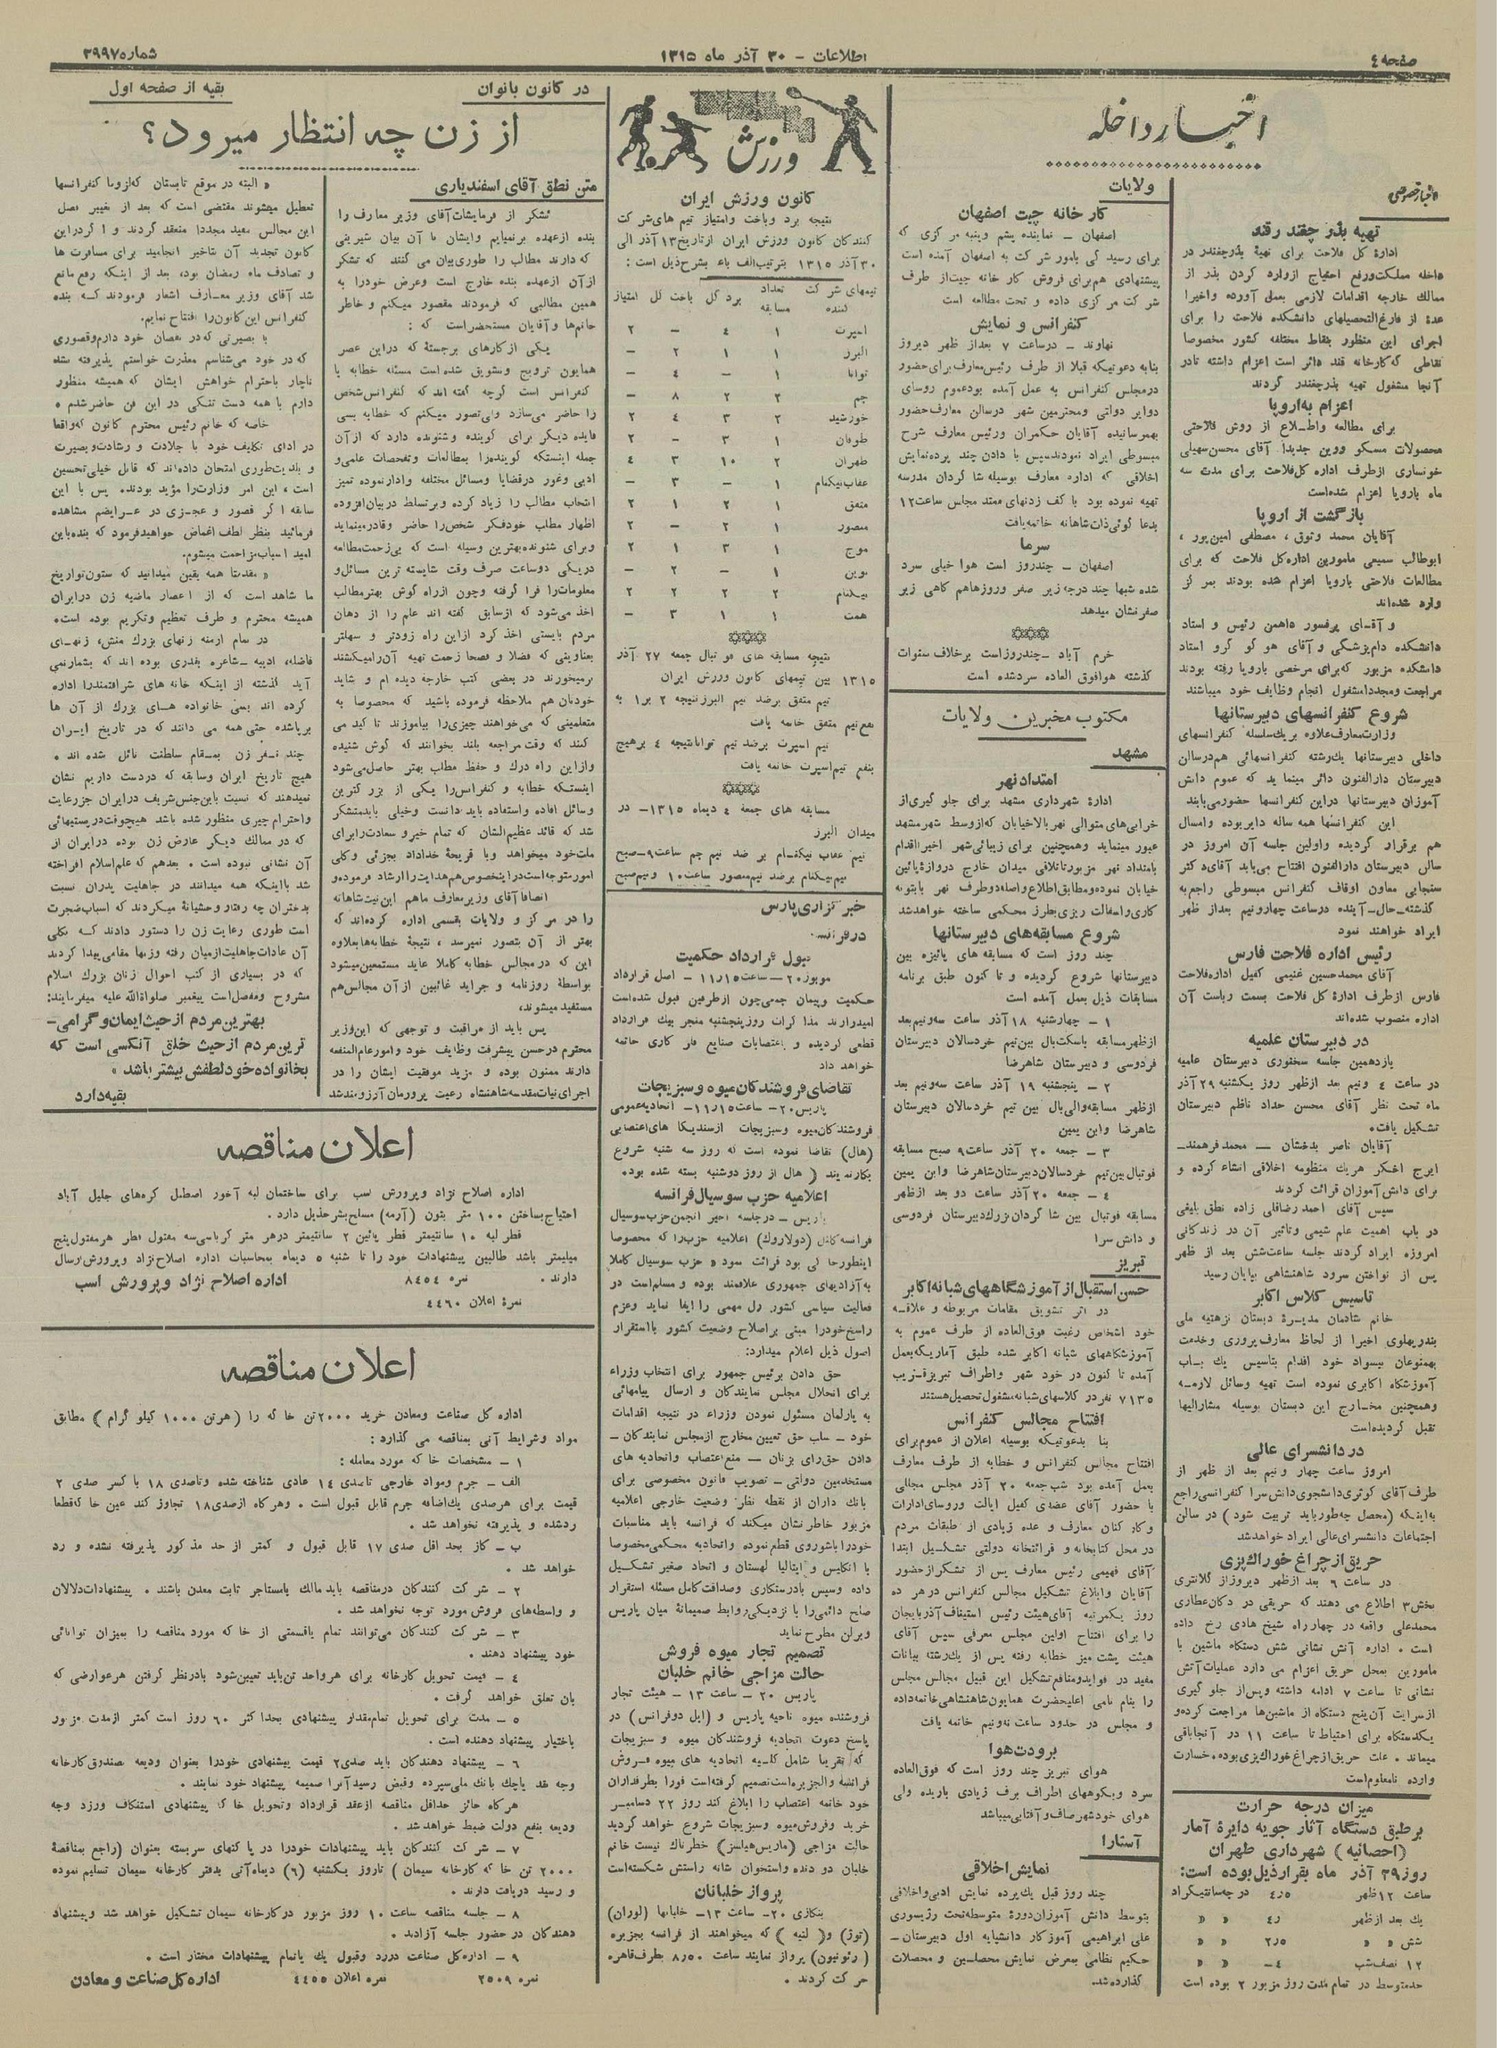 صفحه ٤
اطلاعات - ۳۰ آذر ماه ۱۳۱۵
شماره ۳۹۹۷
اخبار داخله
تهیه بذر چغندر قند
اداره کل فلاحت برای تهیهٔ بذرچغندر در
داخله مملکت ورفع احتیاج ازوارد کردن بذر از
ممالك خارجه اقدامات لازمی بعمل آورده واخیرا
عدهٔ از فارغ‌التحصیلهای دانشکده فلاحت را برای
اجرای این منظور بنقاط مختلفه کشور مخصوصا
نقاطی که‌کارخانه قند دائر است اعزام داشته تادر
آنجا مشغول تهیه بذرچغندر گردند
اعزام به‌اروپا
برای مطالعه واطلاع از روش فلاحتی
خونساری ازطرف اداره کل‌فلاحت برای مدت سه
ماه باروپا اعزام شده‌است
بازگشت از اروپا
آقایان محمد وثوق ، مصطفی امین‌پور ،
ابوطالب سمیعی مامورین اداره‌کل فلاحت که برای
مطالعات فلاحتی باروپا اعزام شده بودند بمر کز
وارد شده‌اند
دانشکده دام‌پزشکی و آقای هو گو گرو استاد
دانشکده مزبور که‌برای مرخصی باروپا رفته بودند
مراجعت ومجددامشغول انجام وظایف خود میباشند
شروع کنفرانسهای دبیرستانها
وزارت‌معارف‌علاوه بریك‌سلسله کنفرانسهای
داخلی دبیرستانها یك‌رشته کنفرانسهائی هم‌درسالن
دبیرستان دارالفنون دائر مینماید که عموم دانش
آموزان دبیرستانها دراین کنفرانسها حضورمی‌یابند
این کنفرانسها همه ساله دایربوده وامسال
هم برقرار گردیده واولین جلسه آن امروز در
سالن دبیرستان دارالفنون افتتاح می‌یابد آقای‌دکتر
سنجابی معاون اوقاف کنفرانس مبسوطی راجع‌به
گذشته-حال-آینده درساعت چهارونیم بعداز ظهر
ایراد خواهند نمود
رئیس اداره فلاحت فارس
آقای محمدحسین غنیمی کفیل اداره‌فلاحت
فارس ازطرف ادارهٔ کل فلاحت بسمت ریاست آن
اداره منصوب شده‌اند
در دبیرستان علمیه
یازدهمین جلسه سخنوری دبیرستان علمیه
در ساعت ٤ ونیم بعد ازظهر روز یکشنبه ۲۹ آذر
ماه تحت نظر آقای محسن حداد ناظم دبیرستان
تشکیل یافت،
آقایان ناصر بدخشان - محمد فرهمند-
ایرج اخگر هریك منظومه اخلاقی انشاء کرده و
برای دانش‌آموزان قرائت کردند
سپس آقای احمد رضاقلی زاده نطق بلیغی
در باب اهمیت علم شیمی وتاثیر آن در زندگانی
امروزه ایراد کردند جلسه ساعت‌شش بعد از ظهر
پس از نواختن سرود شاهنشاهی بپایان رسید
تاسیس کلاس اکابر
خانم شادمان مدیرهٔ دبستان نزهتیه ملی
بندرپهلوی اخیرا از لحاظ معارف‌پروری وخدمت
بهمنوعان بیسواد خود اقدام بتاسیس یك باب
آموزشگاه اکابری نموده است تهیه وسائل لازمه
وهمچنین مخارج این دبستان بوسیله مشارالیها
تقبل گردیده‌است
در دانشسرای عالی
امروز ساعت چهار ونیم بعد از ظهر از
طرف آقای کوثری‌دانشجوی‌دانش‌سرا کنفرانسی‌راجع
به‌اینکه (محصل چه‌طورباید تربیت شود) در سالن
اجتماعات دانشسرای‌عالی ایراد خواهدشد
حریق از چراغ خوراك‌پزی
در ساعت ٦ بعد ازظهر دیروزاز کلانتری
بخش۳ اطلاع می دهند که حریقی در دکان‌عطاری
محمدعلی واقعه در چهار راه شیخ هادی رخ داده
است . اداره آتش نشانی شش دستگاه ماشین با
مامورین بمحل حریق اعزام می دارد عملیات‌آتش
نشانی تا ساعت ۷ ادامه داشته وپس‌از جلو گیری
ازسرایت آن‌پنج دستگاه از ماشین‌ها مراجعت کرده‌و
یکدستگاه برای احتیاط تا ساعت ۱۱ در آنجاباقی
میماند . علت حریق‌ازچراغ خوراك‌پزی‌بوده. خسارت
وارده نامعلوم‌است
میزان درجه حرارت
برطبق دستگاه آثار جویه دایرهٔ آمار
(احصائیه) شهرداری طهران
روز۲۹ آذر ماه بقرارذیل‌بوده است:
ساعت ۱۲ظهر ٤٫٥ درجه‌سانتیگراد
یك بعد ازظهر
شش » » ۲٫٥ » »
۱۲ نصف‌شب ٤- » »
حدمتوسط در تمام مدت روز مزبور ۲ بوده است
ولایات
کارخانه چیت اصفهان
اصفهان - نماینده پشم وپنبه مر کزی که
برای رسید گی بامور شر کت به اصفهان آمده است
پیشنهادی هم‌برای فروش کار خانه چیت‌از طرف
شر کت مر کزی داده و تحت مطالعه است
کنفرانس و نمایش
نهاوند - درساعت ۷ بعداز ظهر دیروز
بنابه دعوتیکه قبلا از طرف رئیس‌معارف‌برای‌حضور
درمجلس کنفرانس به عمل آمده بودعموم روسای
دوایر دولتی ومحترمین شهر درسالن معارف‌حضور
بهمرسانیده آقایان حکمران ورئیس معارف شرح
مبسوطی ایراد نمودندسپس با دادن چند پرده‌نمایش
اخلاقی که اداره معارف بوسیله شا گردان مدرسه
تهیه نموده بود با کف زدنهای ممتد مجلس ساعت۱۲
بدعا گوئی‌ذات‌شاهانه خاتمه‌یافت
سرما
اصفهان - چندروز است هوا خیلی سرد
شده شبها چند درجه زیر صفر وروزهاهم گاهی زیر
صفرنشان میدهد
خرم آباد -چندروزاست برخلاف سنوات
گذشته هوافوق العاده سردشده است
مکتوب مخبرین ولایات
مشهد
امتداد نهر
ادارهٔ شهرداری مشهد برای جلو گیری‌از
خرابی‌های متوالی نهربالاخیابان که‌ازوسط شهرمشهد
عبور مینماید وهمچنین برای زیبائی شهر اخیراقدام
بامتداد نهر مزبورتاتلاقی میدان خارج دروازهٔ‌پائین
خیابان نموده‌ومطابق‌اطلاع واصله‌دوطرف نهر بابتونه
کاری‌واسفالت ریزی‌بطرز محکمی ساخته خواهدشد
شروع مسابقه‌های دبیرستانها
چند روز است که مسابقه های پائیزه بین
دبیرستانها شروع گردیده و تا کنون طبق برنامه
مسابقات ذیل بعمل آمده است
۱ - چهارشنبه ۱۸ آذر ساعت سه‌ونیم‌بعد
ازظهرمسابقه باسکت‌بال بین‌تیم خردسالان دبیرستان
فردوسی و دبیرستان شاهرضا
۲ - پنجشنبه ۱۹ آذر ساعت سه‌ونیم بعد
ازظهر مسابقه‌والی‌بال بین تیم خردسالان دبیرستان
شاهرضا وابن یمین
۳ - جمعه ۲۰ آذر ساعت۹ صبح مسابقه
فوتبال بین‌تیم خردسالان‌دبیرستان‌شاهرضا وابن یمین
٤ - جمعه ۲۰ آذر ساعت دو بعد ازظهر
مسابقه فوتبال بین شا گردان‌بزرك‌دبیرستان فردوسی
و دانش سرا
تبریز
حسن استقبال از آموزشگاههای شبانه اکابر
در اثر تشویق مقامات مربوطه و علاقه
خود اشخاص رغبت فوق‌العاده از طرف عموم به
آموزشگاههای شبانه اکابر شده طبق آماریکه‌بعمل
آمده تا کنون در خود شهر واطراف تبریزقریب
۷۱۳۵ نفردر کلاسهای شبانه‌مشغول‌تحصیل‌هستند
افتتاح مجالس کنفرانس
بنا بدعوتیکه بوسیله اعلان از عموم‌برای
افتتاح مجالس کنفرانس و خطابه از طرف معارف
بعمل آمده بود شب‌جمعه ۲۰ آذر مجلس مجالی
با حضور آقای عضدی کفیل ایالت وروسای‌ادارات
وکار کنان معارف و عده زیادی از طبقات مردم
در محل کتابخانه و قرائتخانه دولتی تشکیل ابتدا
آقای فهیمی رئیس معارف پس از تشکرازحضور
آقایان وابلاغ تشکیل مجالس کنفرانس درهر ده
روز یکمرتبه آقای‌هیئت رئیس استیناف آذربایجان
را برای افتتاح اولین مجلس معرفی سپس آقای
هیئت پشت میز خطابه رفته پس از یك‌رشته بیانات
مفید در فوایدومنافع‌تشکیل این قبیل مجالس مجلس
را بنام نامی اعلیحضرت همایون‌شاهنشاهی‌خاتمه‌داده
و مجلس در حدود ساعت نه‌ونیم خاتمه یافت
برودت‌هوا
هوای تبریز چند روز است که فوق‌العاده
سرد وبکوههای اطراف برف زیادی باریده ولی
هوای خودشهرصاف‌وآفتابی‌میباشد
آستارا
نمایش اخلاقی
چند روز قبل یك‌پرده نمایش ادبی‌واخلاقی
بتوسط دانش آموزان‌دورهٔ متوسطه‌تحت رژیسوری
علی ابراهیمی آموزکار دانشپایه اول دبیرستان-
حکیم نظامی بمعرض نمایش محصلین و محصلات
گذارده‌شد.
ورزش
کانون ورزش ایران
نتیجه برد وباخت وامتیاز تیم های‌شر کت
کنندکان کانون ورزش ایران ازتاریخ۱۳آذر الی
۳۰آذر ۱۳۱۵ بترتیب‌الف باء بشرح‌ذیل است :
تیمهای شر کت کننده تعداد مسابقه برد گل باخت گل امتیاز
اسپرت ۱ ٤ - ۲
البرز ۱ ۱ ۲ -
توانا ۱ - ٤ -
جم ۲ ۲ ۸ -
خورشید ۲ ۳ ٤ ۲
طوفان ۱ ۳ - ۲
طهران ۲ ۱۰ ۳ ٤
عقاب‌نیکنام ۱ - ۳ -
متفق ۱ ۲ ۱ ۲
منصور ۱ ۲ - ۲
موج ۱ ۳ ۱ ۲
نوین ۱ - ۲ -
نیکنام ۲ ۲ ۲ ۲
همت ۱ ۱ ۳ -
نتیجه مسابقه های فو تبال جمعه ۲۷ آذر
۱۳۱۵ بین تیمهای کانون ورزش ایران
تیم متفق برضد تیم البرزنتیجه ۲ بر۱ به
نفع‌تیم متفق خاتمه یافت
تیم اسپرت برضد تیم توانابنتیجه ٤ برهیچ
بنفع تیم‌اسپرت خاتمه یافت
مسابقه های جمعه ٤ دیماه ۱۳۱۵- در
میدان البرز
تیم عقاب نیکنام بر ضد تیم جم ساعت۹-صبح
تیم‌نیکنام برضد تیم‌منصور ساعت۱۰ ونیم‌صبح
خبرگزاری پارس
درفرانسه
قبول قرارداد حکمیت
موبوژ ۲۰-ساعت۱۱٫۱۵ - اصل قرارداد
حکمیت وپیمان جمعی‌چون ازطرفین قبول شده‌است
امیدوارند مذا کرات روزپنجشنبه منجر بیك قرارداد
قطعی گردیده و اعتصابات صنایع فلز کاری خاتمه
خواهد داد
تقاضای فروشندکان میوه وسبزیجات
پاریس۲۰- ساعت۱۱٫۱۵- اتحادیه‌عمومی
فروشندکان‌میوه وسبزیجات ازسندیکا های‌اعتصابی
(هال) تقاضا نموده است که روز سه شنبه شروع
بکارنمایند ( هال از روز دوشنبه بسته شده بود.
اعلامیه حزب سوسیال فرانسه
پاریس - درجلسه اخیر انجمن‌حزب‌سوسیال
فرانسه‌کلنل (دولاروك) اعلامیه حزب‌را که مخصوصا
اینطورحا کی بود قرائت نمود « حزب سوسیال کاملا
به‌آزادیهای جمهوری علاقمند بوده و مسلم‌است در
فعالیت سیاسی کشور رل مهمی را ایفا نماید وعزم
راسخ‌خودرا مبنی براصلاح وضعیت کشور بااستقرار
اصول ذیل اعلام میدارد:
حق دادن برئیس جمهور برای انتخاب وزراء
برای انحلال مجلس نمایندکان و ارسال پیامهائی
به پارلمان مسئول نمودن وزراء در نتیجه اقدامات
خود - سلب حق تعیین مخارج ازمجلس نمایندکان -
دادن حق‌رای بزنان - منع‌اعتصاب واتحادیه های
مستخدمین دولتی - تصویب قانون مخصوصی برای
بانك داران از نقطه نظر وضعیت خارجی اعلامیه
مزبور خاطرنشان میکند که فرانسه باید مناسبات
خودرا باشوروی قطع‌نموده واتحادیه محکمی‌مخصوصا
با انگلیس و ایتالیا لهستان و اتحاد صغیر تشکیل
داده وسپس بادرستکاری وصداقت‌کامل مسئله استقرار
صلح دائمی‌را با نزدیکی‌روابط صمیمانهٔ میان پاریس
وبرلن مطرح نماید
تصمیم تجار میوه فروش
حالت مزاجی خانم خلبان
پاریس ۲۰ - ساعت ۱۳ - هیئت تجار
فروشنده میوه ناحیه پاریس و (ایل دوفرانس) در
پاسخ دعوت اتحادیه فروشندکان میوه و سبزیجات
که تقریبا شامل کلیه اتحادیه های میوه فروش
فرانسه والجزیره‌است‌تصمیم گرفته‌است فورا بطرفداران
خود خاتمه اعتصاب را ابلاغ کند روز ۲۲ دسامبر
خرید وفروش‌میوه وسبزیجات شروع خواهد گردید
حالت مزاجی (ماریس‌هیلسز) خطرناك نیست خانم
خلبان دو دنده واستخوان شانه راستش شکسته‌است
پرواز خلبانان
بنگازی ۲۰- ساعت ۱۳- خلبانها (لوران)
(توژ) و( لنیه ) که میخواهند از فرانسه بجزیره
(رئونیون) پرواز نمایند ساعت ۸٫۵۰ بطرف‌قاهره
حر کت کردند .
در کانون بانوان
بقیه از صفحه اول
از زن چه انتظار میرود؟
متن نطق آقای اسفندیاری
تشکر از فرمایشات‌آقای وزیر معارف را
بنده ازعهده برنمیایم وایشان با آن بیان شیرینی
که دارند مطالب را طوری‌بیان می کنند که تشکر
ازآن ازعهده بنده خارج است وعرض خودرا به
همین مطالبی که فرمودند مقصور میکنم و خاطر
خانم‌ها وآقایان مستحضراست که :
یکی ازکارهای برجستهٔ که دراین عصر
همایون ترویج وتشویق شده‌است مسئله خطابه یا
کنفرانس است گرچه گفته اند که کنفرانس‌شخص
را حاضر می‌سازد ولی‌تصور میکنم که خطابه بسی
فایده دیگر برای گوینده وشنونده دارد که ازآن
جمله اینستکه گوینده‌را بمطالعات وتفحصات علمی‌و
ادبی وغور درقضایا ومسائل مختلفه وادارنموده تمیز
انتخاب مطالب را زیاد کرده وبرتسلط دربیان‌افزوده
اظهار مطلب خودفکر شخص‌را حاضر وقادرمینماید
وبرای شنونده‌بهترین وسیله است که بی‌زحمت‌مطالعه
دریکی دوساعت صرف وقت شایسته ترین مسائل‌و
معلومات‌را فرا گرفته وچون ازراه گوش بهترمطالب
اخذ می‌شود که ازسابق گفته اند علم‌را از دهان
مردم بایستی اخذ کرد ازاین راه زودتر و سهلتر
بعناوینی که فضلا و فصحا زحمت تهیه آن‌رامیکشند
برمیخورند در بعضی کتب خارجه دیده ام و شاید
خودتان هم ملاحظه فرموده باشید که مخصوصا به
متعلمینی که می‌خواهند چیزی‌را بیاموزند تا کید می
کنند که وقت مراجعه بلند بخوانند که گوش شنیده
وازاین راه درك و حفظ مطلب بهتر حاصل‌می‌شود
اینستکه خطابه و کنفرانس‌را یکی از بزر کترین
وسائل افاده واستفاده باید دانست وخیلی بایدمتشکر
شد که قائد عظیم‌الشان که تمام خیر و سعادت‌رابرای
ملت‌خود میخواهد وبا قریحهٔ خداداد بجزئی وکلی
امورمتوجه‌است دراینخصوص‌هم‌هدایت‌را ارشاد فرموده‌و
انصافاآقای وزیرمعارف ماهم این‌نیت‌شاهانه
را در مر کز و ولایات بقسمی اداره کرده‌اند که
بهتر از آن بتصور نمیرسد ، نتیجهٔ خطابه‌ها بعلاوه
این که در مجالس خطابه کاملا عاید مستمعین‌میشود
بواسطهٔ روزنامه و جراید غائبین ازآن مجالس‌هم
مستفید میشوند،
پس باید از مراقبت و توجهی که این‌وزیر
محترم درحسن پیشرفت وظایف خود وامورعام‌المنفعه
دارند ممنون بوده و مزید موفقیت ایشان را در
اجرای‌نیات‌مقدسه‌شاهنشاه رعیت پرورمان آرزومندشد
« البته در موقع تابستان که‌لزوما کنفرانسها
تعطیل میشوند مقتضی است که بعد از تغییر فصل
این مجالس مفید مجددا منعقد گردند و ا گردراین
کانون تجدید آن بتاخیر انجامید برای مسافرت ها
و تصادف ماه رمضان بود، بعد از اینکه رفع مانع
شد آقای وزیر معارف اشعار فرمودند که بنده
کنفرانس این‌کانون‌را افتتاح نمایم.
با بصیرتی که‌در نقصان خود دارم‌وقصوری
که‌در خود می‌شناسم معذرت خواستم پذیرفته نشده
ناچار باحترام خواهش ایشان که همیشه منظور
دارم با همه دست تنگی در این فن حاضرشدم ،
خاصه که خانم رئیس محترم کانون که‌واقعا
در ادای تکلیف خود با جلادت و رشادت‌وبصیرت
و بلدیت‌طوری امتحان داده‌اند که قابل خیلی‌تحسین
است ، این امر وزارت‌را مؤید بودند. پس با این
سابقه ا گر قصور و عجزی در عرایضم مشاهده
فرمائید بنظر لطف اغماض خواهیدفرمود که بنده‌باین
امید اسباب‌مزاحمت میشوم.
« مقدمتا همه یقین میدانید که ستون‌تواریخ
ما شاهد است که از اعصار ماضیه زن درایران
همیشه محترم و طرف تعظیم وتکریم بوده است،
در تمام ازمنه زنهای بزرك منش، زنهای
فاضله، ادیبه -شاعره بقدری بوده اند که بشمارنمی
آید گذشته از اینکه خانه های شرافتمندرا اداره
کرده اند بسی خانواده های بزرك از آن ها
برپاشده حتی‌همه می دانند که در تاریخ ایران
چند نفر زن بمقام سلطنت نائل شده اند ،
هیچ تاریخ ایران وسابقه که دردست داریم نشان
نمیدهند که نسبت باین‌جنس‌شریف درایران جزرعایت
واحترام چیزی منظور شده باشد هیچوقت‌درپستیهائی
که در ممالك دیگر عارض زن بوده درایران از
آن نشانی نبوده است . بعدهم که علم‌اسلام افراخته
شد بااینکه همه میدانند در جاهلیت پدران نسبت
بدختران چه رفتار وحشیانهٔ میکردند که اسباب‌ضجرت
است طوری رعایت زن را دستور دادند که بکلی
آن عادات‌جاهلیت‌ازمیان رفته وزنها مقامی‌پیدا کردند
که در بسیاری از کتب احوال زنان بزرك اسلام
مشروح ومفصل‌است پیغمبر صلواةالله علیه میفرمایند:
بهترین مردم از حیث ایمان و گرامی-
ترین مردم از حیث خلق آنکسی است که
بخانواده خود لطفش بیشتر باشد »
بقیه دارد
اعلان مناقصه
اداره اصلاح نژاد وپرورش اسب برای ساختمان لبه آخور اصطبل کره‌های جلیل آباد
احتیاج‌بساختن ۱۰۰ متر بتون (آرمه) مسلح‌بشرحذیل دارد .
قطر لبه ۱۰ سانتیمتر قطر پائین ۲ سانتیمتر درهر متر کرباسی‌سه مفتول قطر هرمفتول‌پنج
میلیمتر باشد طالبین پیشنهادات خود را تا شنبه ۵ دیماه بمحاسبات اداره اصلاح‌نژاد وپرورش‌ارسال
دارند . نمره ۸٤٥٤ اداره اصلاح نژاد وپرورش اسب
نمرهٔ اعلان ٤٤٦۰
اعلان مناقصه
اداره کل صناعت ومعادن خرید ۲۰۰۰تن خا که را (هرتن ۱۰۰۰ کیلو گرام) مطابق
مواد وشرایط آتی بمناقصه می گذارد:
۱ - مشخصات خا که مورد معامله :
الف - جرم ومواد خارجی تاصدی ۱٤ عادی شناخته شده وتاصدی ۱۸ با کسر صدی ۲
قیمت برای هرصدی یك‌اضافه جرم قابل قبول است . وهرکاه ازصدی۱۸ تجاوز کند عین خا که‌قطعا
ردشده و پذیرفته نخواهد شد .
ب - کاز بحد اقل صدی ۱۷ قابل قبول و کمتر از حد مذکور پذیرفته نشده و رد
خواهد شد .
۲ - شر کت کنندکان درمناقصه باید مالك یامستاجر ثابت معدن باشند . پیشنهادات‌دلالان
و واسطه‌های فروش مورد توجه نخواهد شد .
۳ - شر کت کنندکان می‌توانند تمام یاقسمتی از خا که مورد مناقصه را بمیزان توانائی
خود پیشنهاد دهند .
٤ - قیمت تحویل کارخانه برای هرواحد تن‌باید تعیین‌شود بادرنظر گرفتن هرعوارضی که
بان تعلق خواهد گرفت .
۵ - مدت برای تحویل تمام‌مقدار پیشنهادی بحدا کثر ٦۰ روز است کمتر ازمدت مزبور
باختیار پیشنهاد دهنده است .
٦ - پیشنهاد دهندکان باید صدی۲ قیمت پیشنهادی خودرا بعنوان ودیعه بصندوق‌کارخانه
وجه نقد یاچك بانك ملی‌سپرده وقبض رسیدآنرا ضمیمه پیشنهاد خود نمایند .
هرکاه حائز حداقل مناقصه ازعقد قرارداد وتحویل خا که پیشنهادی استنکاف ورزد وجه
ودیعه بنفع دولت ضبط خواهدشد .
۷ - شر کت کنندکان باید پیشنهادات خودرا در پا کتهای سربسته بعنوان (راجع بمناقصهٔ
۲۰۰۰ تن خا که کارخانه سیمان) تاروز یکشنبه (٦) دیماه‌آتی بدفتر کارخانه سیمان تسلیم نموده
و رسید دریافت دارند .
۸ - جلسه مناقصه ساعت ۱۰ روز مزبور درکارخانه سیمان تشکیل خواهد شد وپیشنهاد
دهندکان در حضور جلسه آزادند .
۹ - اداره‌کل صناعت دررد وقبول یك یاتمام پیشنهادات مختار است .
نمره ۲٥۰۹ نمره اعلان ٤٤٥٥ اداره کل صناعت و معادن